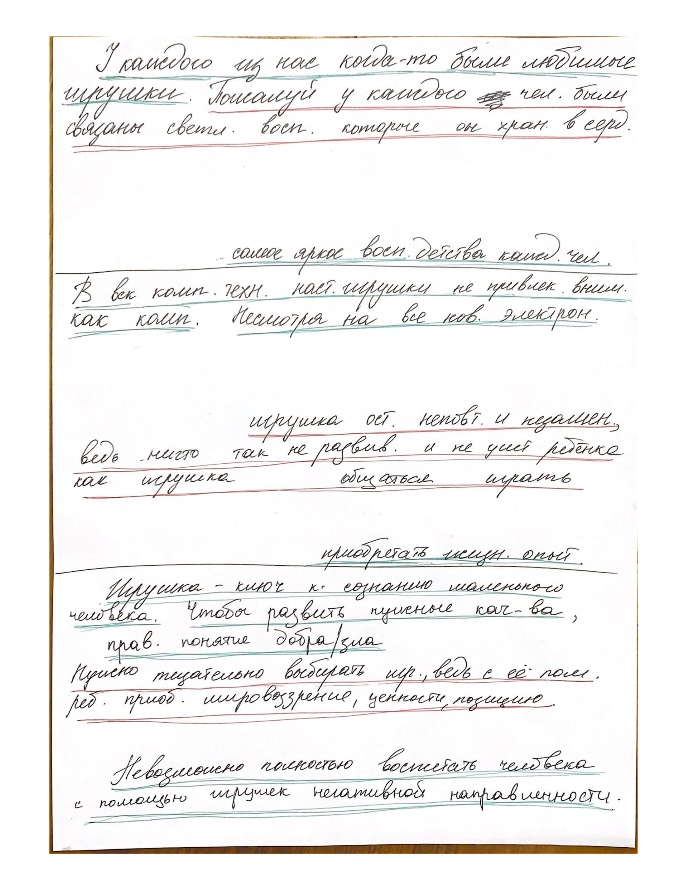 У каждого из нас когда-то были любимые
игрушки. Пожалуй у каждого чел. были
связаны светл. восп. которые он хран. в серд.
самое яркое восп. детства кажд. чел.
В век комп. техн. наст. игрушки не привлек. вним.
как комп. Несмотря на все нов. электрон.
игрушка ост. неповт. и незамен.,
ведь ничто так не развив. и не учит ребёнка
как игрушка общаться играть
приобретать жизн. опыт
Игрушка - ключ к сознанию маленького
человека. Чтобы развить нужные кач-ва,
прав. понятие добра/зла
Нужно тщательно выбирать игр., ведь с её пом.
реб. приоб. мировоззрение, ценности, позицию.
Невозможно полностью воспитать человека
с помощью игрушек негативной направленности.